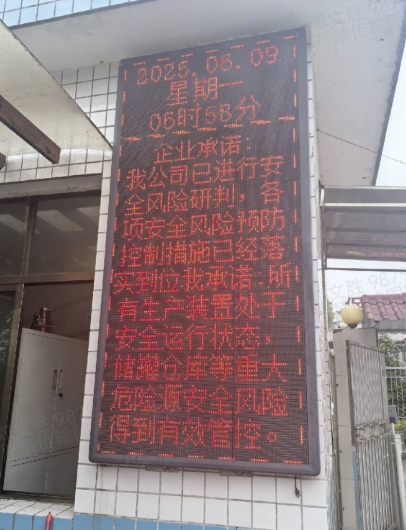 2025.06.09
星期一
06时58分
企业承诺:
我公司已进行安
全风险研判,各
项安全风险预防
控制措施已经落
实到位我承诺:所
有生产装置处于
安全运行状态,
储罐仓库等重大
危险源安全风险
得到有效管控。